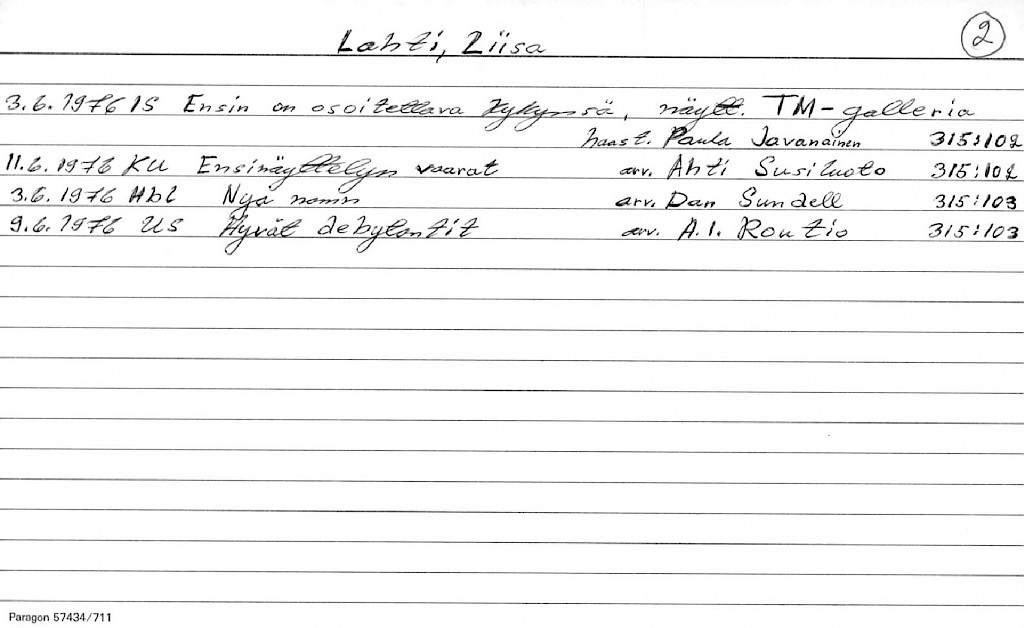 Lahti, Liisa 2
3.6.1976 IS Ensin on osoitettava kykynsä, näytt. TM-galleria
haast. Paula Javanainen 315:102
11.6.1976 KU Ensinäyttelyn vaarat arv. Ahti Susiluoto 315:102
3.6.1976 Hbl Nya namn arv. Dan Sundell 315:103
9.6.1976 US Hyvät debytantit arv. A.I. Routio 315:103
Paragon 57434/711